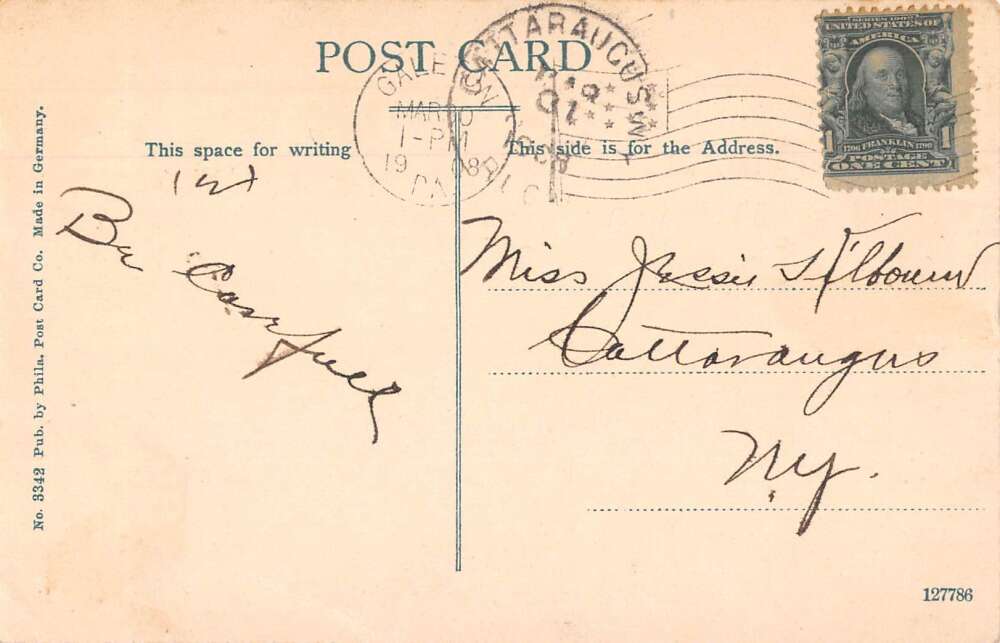 POST CARD
CATTARAUGUS
MAR
1908
GALETON
MAR 10
1-PM
1908
PA.
SERIES 1902
UNITED STATES OF
AMERICA
1706 FRANKLIN 1790
1 POSTAGE 1
ONE CENT
This space for writing
This side is for the Address.
1st
Be
Carefull
Miss Jessie Kilbourn
Cattaraugus
Ny.
No. 3342 Pub. by Phila. Post Card Co. Made in Germany.
127786